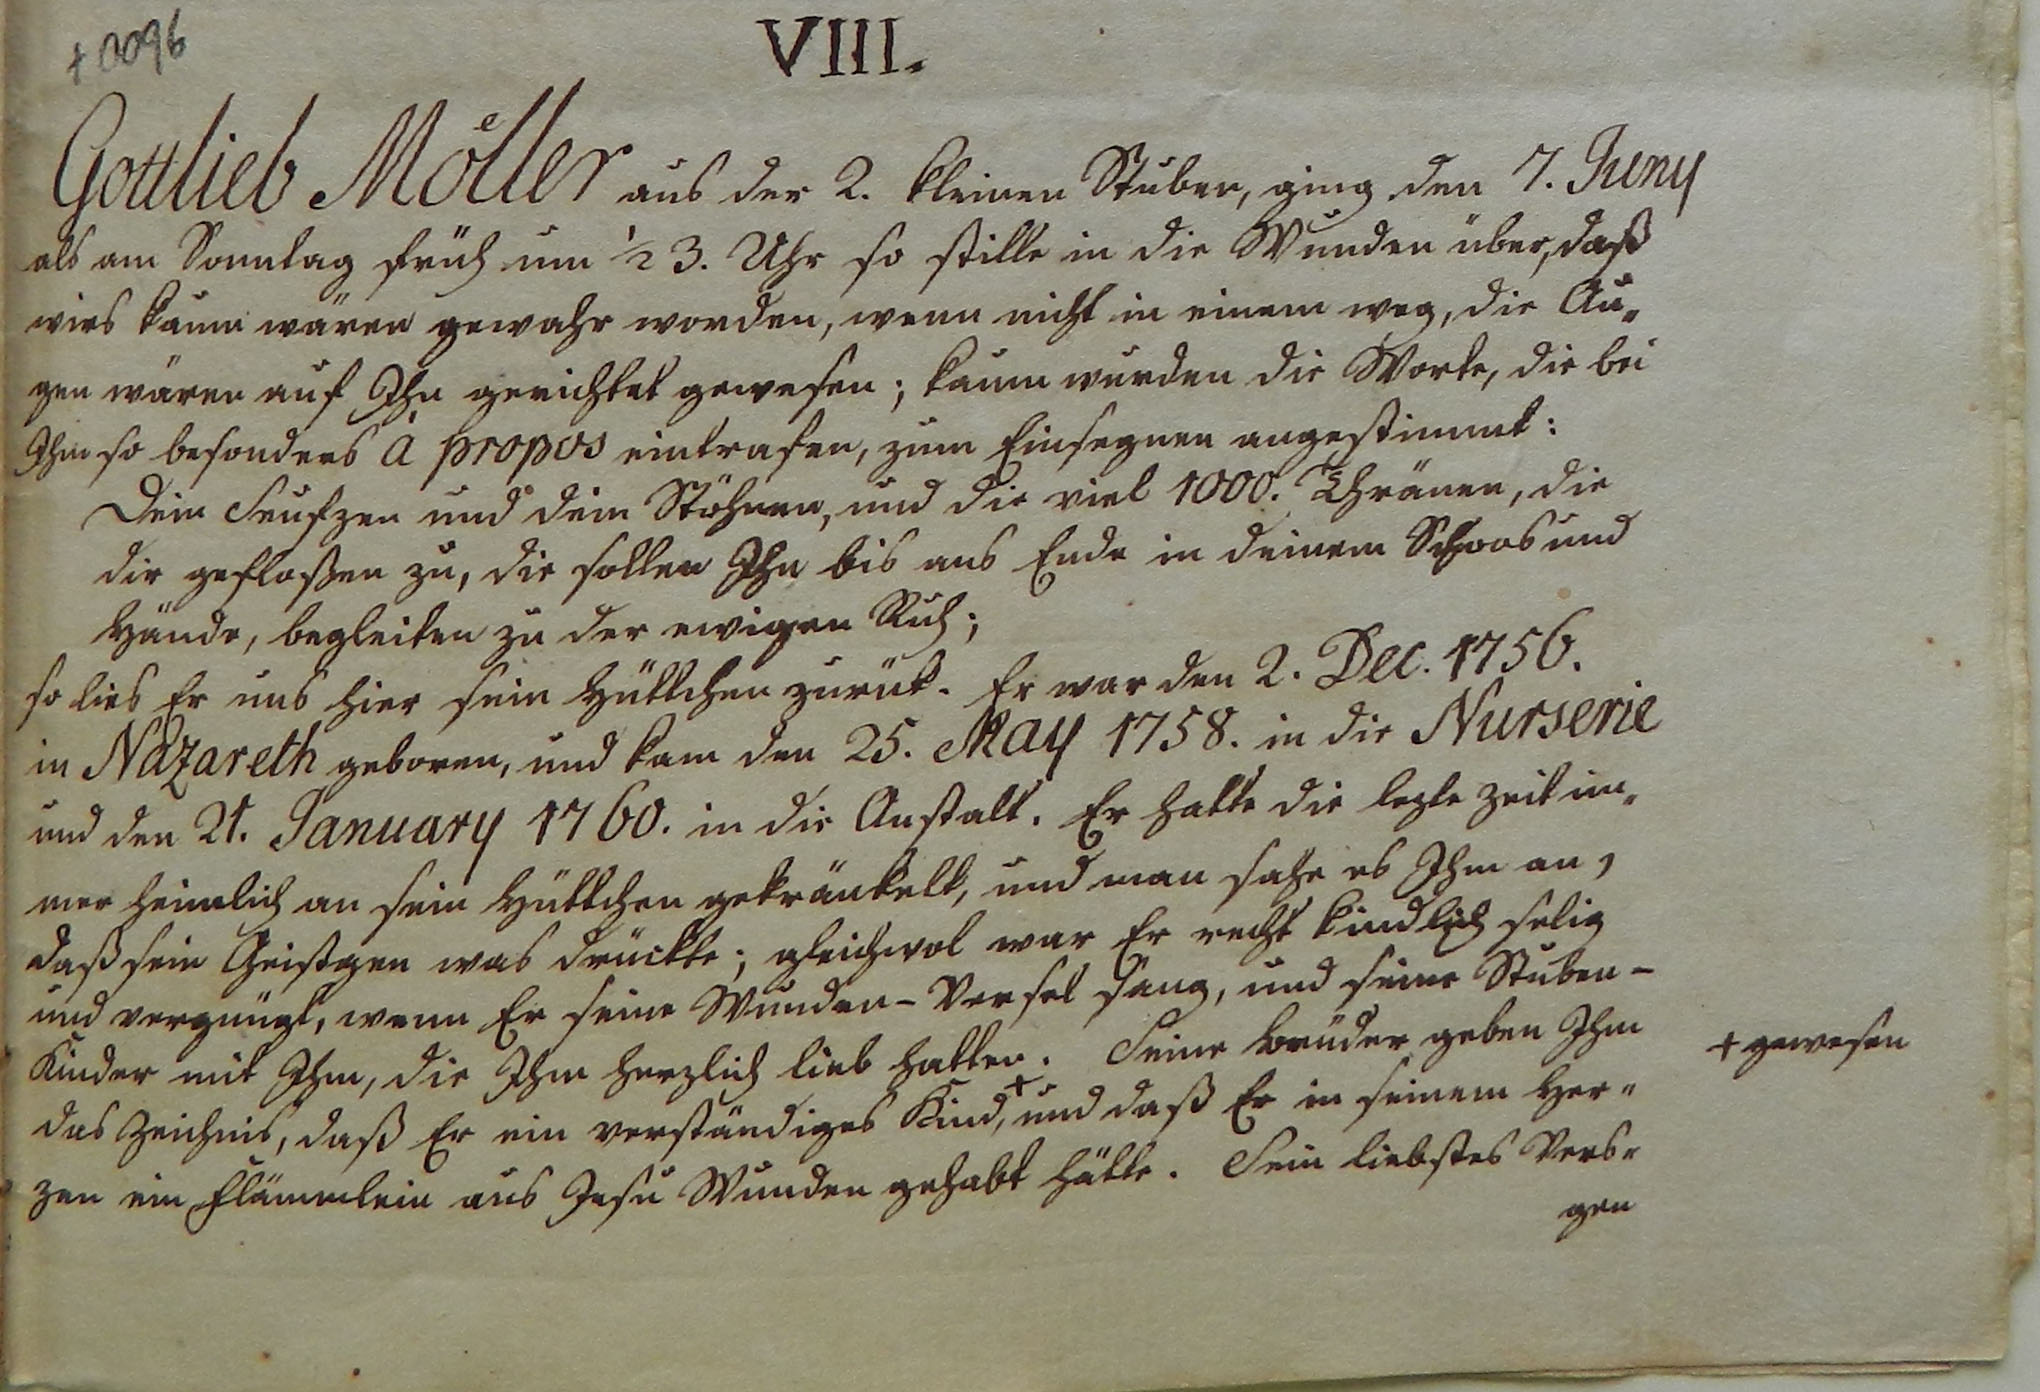 +0096
VIII.
Gottlieb Möller aus der 2. kleinen Stuben, ging den 7. Juny
als am Sonntag früh um ½ 3. Uhr so stille in die Wunden über, daß
wirs kaum wären gewahr worden, wenn nicht in einem weg, die Au„
gen wären auf Ihn gerichtet gewesen; kaum wurden die Worte, die bei
Ihm so besonders à propos eintrafen, zum Einsegnen angestimmt:
Dein Seufzen und dein Stöhnen, und die viel 1000. Thränen, die
dir gefloßen zu, die sollen Ihn bis ans Ende in deinem Schoos und
Hände, begleiten zu der ewigen Ruh;
so lies Er uns hier sein Hüttchen zurük. Er war den 2. Dec. 1756.
in Nazareth geboren, und kam den 25. May 1758. in die Nurserie
und den 21. January 1760. in die Anstalt. Er hatte die lezte Zeit im„
mer heimlich an sein Hüttchen gekränkelt, und man sahe es Ihm an,
daß sein Geistgen was drückte; gleichwol war Er recht kindlich selig
und vergnügt, wenn Er seine Wunden-Versel sang, und seine Stuben-
Kinder mit Ihm, die Ihm herzlich lieb hatten. Seine Brüder geben Ihm
das Zeichnis, daß Er ein verständiges Kind,+ und daß Er in seinem Her„
+ gewesen
zen ein Flämmlein aus Jesu Wunden gehabt hätte. Sein liebstes Vers„
gen